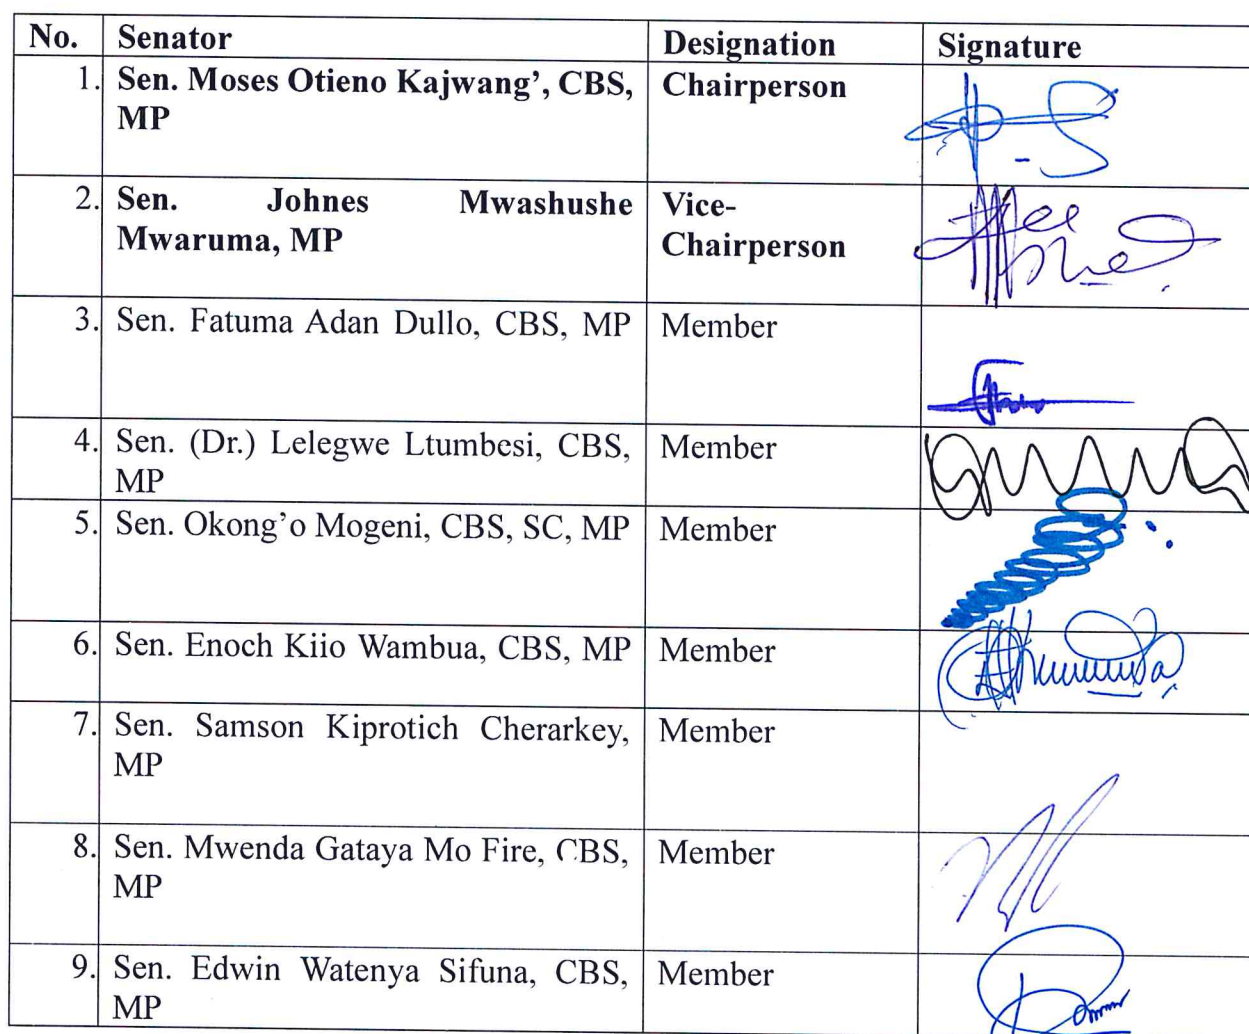 No. Senator Designation Signature
1. Sen. Moses Otieno Kajwang’, CBS, Chairperson
MP
2. Sen. Johnes Mwashushe Vice-
Mwaruma, MP Chairperson
3. Sen. Fatuma Adan Dullo, CBS, MP Member
4. Sen. (Dr.) Lelegwe Ltumbesi, CBS, Member
MP
5. Sen. Okong’o Mogeni, CBS, SC, MP Member
6. Sen. Enoch Kiio Wambua, CBS, MP Member
7. Sen. Samson Kiprotich Cherarkey, Member
MP
8. Sen. Mwenda Gataya Mo Fire, CBS, Member
MP
9. Sen. Edwin Watenya Sifuna, CBS, Member
MP